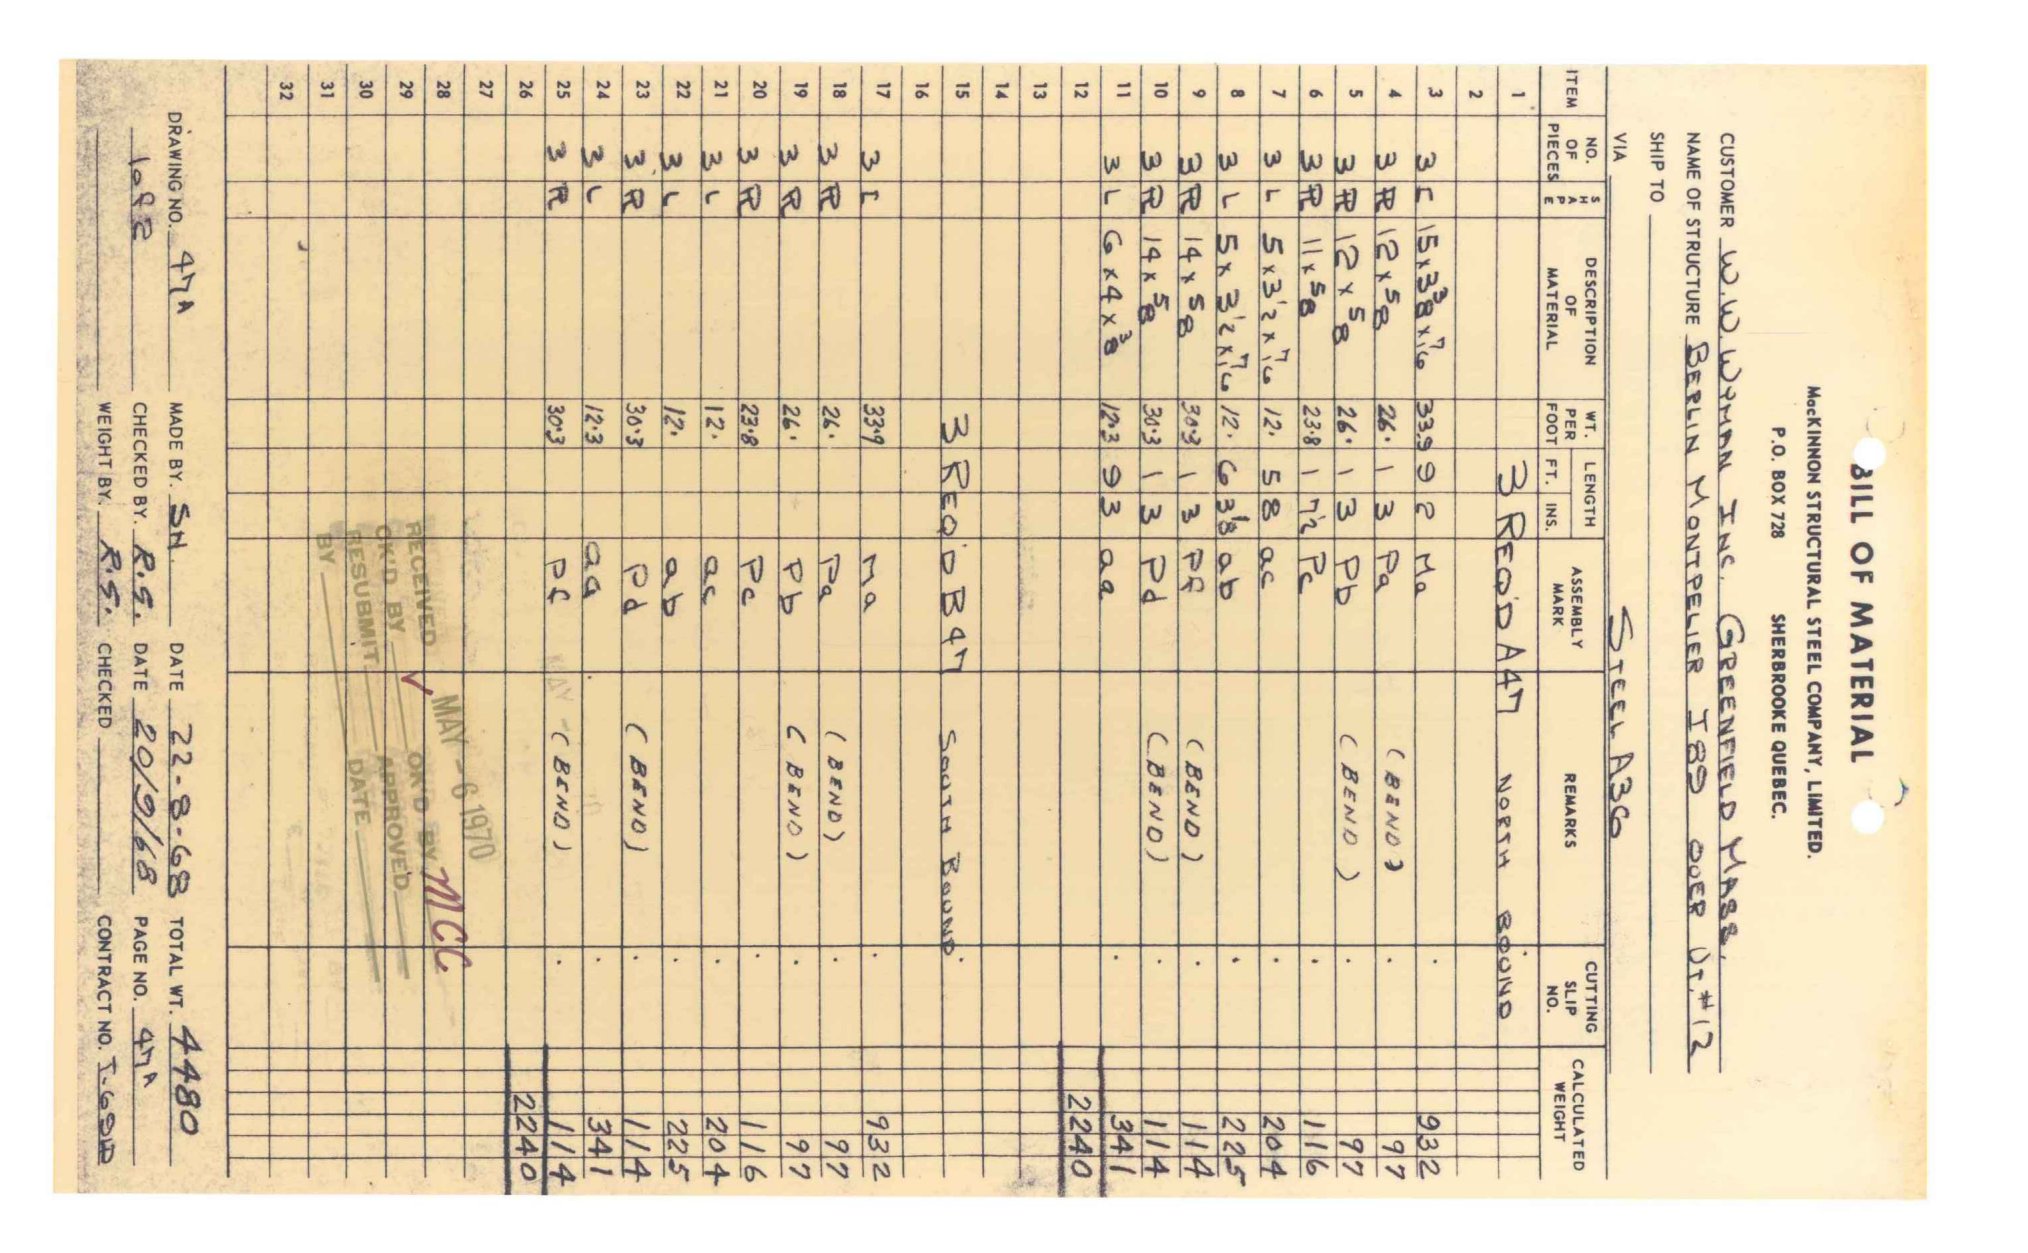 BILL OF MATERIAL
MacKINNON STRUCTURAL STEEL COMPANY, LIMITED.
P.O. BOX 728 SHERBROOKE QUEBEC.
CUSTOMER W.W. WYMAN INC. GREENFIELD MASS.
NAME OF STRUCTURE BERLIN MONTPELIER I89 OVER VT. #12
SHIP TO
VIA STEEL A36
ITEM NO. OF PIECES SHAPE DESCRIPTION OF MATERIAL WT. PER FOOT LENGTH FT. INS. ASSEMBLY MARK REMARKS CUTTING SLIP NO. CALCULATED WEIGHT
1 3 REQ'D A47 NORTH BOUND
2
3 3 [ 15x3 3/8x7/16 33.9 9 2 Ma 932
4 3 PL 12x5/8 26. 1 3 Pa (BEND) 97
5 3 PL 12x5/8 26. 1 3 Pb (BEND) 97
6 3 PL 11x5/8 23.8 1 7 1/2 Pc 116
7 3 L 5x3 1/2x7/16 12. 5 8 ac 204
8 3 L 5x3 1/2x7/16 12. 6 3 1/8 ab 225
9 3 PL 14x5/8 30.3 1 3 Pf (BEND) 114
10 3 PL 14x5/8 30.3 1 3 Pd (BEND) 114
11 3 L 6x4x3/8 12.3 9 3 aa 341
12 2240
13
14
15 3 REQ'D B47 SOUTH BOUND
16
17 3 [ 33.9 Ma 932
18 3 PL 26. Pa (BEND) 97
19 3 PL 26. Pb (BEND) 97
20 3 PL 23.8 Pc 116
21 3 L 12. ac 204
22 3 L 12. ab 225
23 3 PL 30.3 Pd (BEND) 114
24 3 L 12.3 aa 341
25 3 PL 30.3 Pf (BEND) 114
26 2240
27
28
29
30
31
32
MAY - 6 1970
RECEIVED
OK'D BY OK'D BY MCC
RESUBMIT APPROVED
BY DATE
DRAWING NO. 47A MADE BY. SN. DATE 22-8-68 TOTAL WT. 4480
CHECKED BY. R.S. DATE 20/9/68 PAGE NO. 47A
WEIGHT BY. R.S. CHECKED CONTRACT NO.